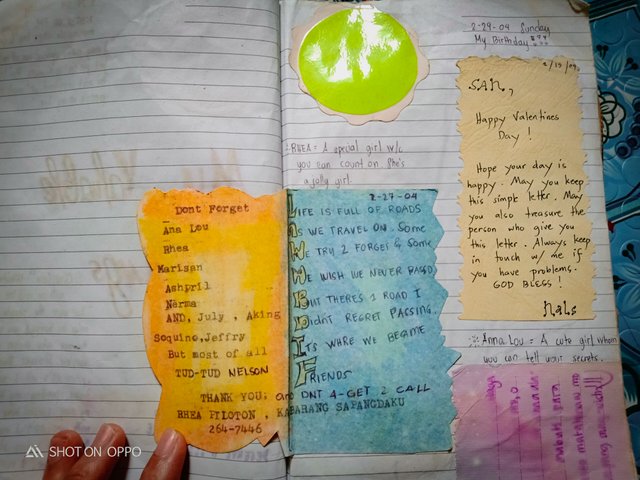 :: RHEA = A special girl w/c
you can count on She's
a jolly girl.
Dont Forget
Ana Lou
Rhea
Marisan
Ashpril
Nerma
AND, July , Aking
Soquino,Jeffry
But most of all
TUD-TUD NELSON
THANK YOU, and DNT 4-GET 2 CALL
RHEA PILOTON , KABARANG SAPANGDAKU
264-7446
2-27-04
LIFE IS FULL OF ROADS
AS WE TRAVEL ON. Some
WE TRY 2 FORGET & Some
WE WISH WE NEVER PASD
BUT THERES 1 ROAD I
DIdNT REGRET PASSING.
ITS WHRE WE BECAME
FRIENDS
2-29-04 Sunday
My Birthday !!!
2/15/04
SAN,
Happy Valentines
Day !
Hope your day is
happy. May you keep
this simple letter. May
you also treasure the
person who give you
this letter. Always keep
in touch w/ me if
you have problems.
GOD BLESS !
Nals
:: Anna Lou = A cute girl whom
you can tell your secrets.
SHOT ON OPPO